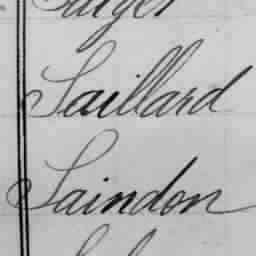 Saillard
Saindon